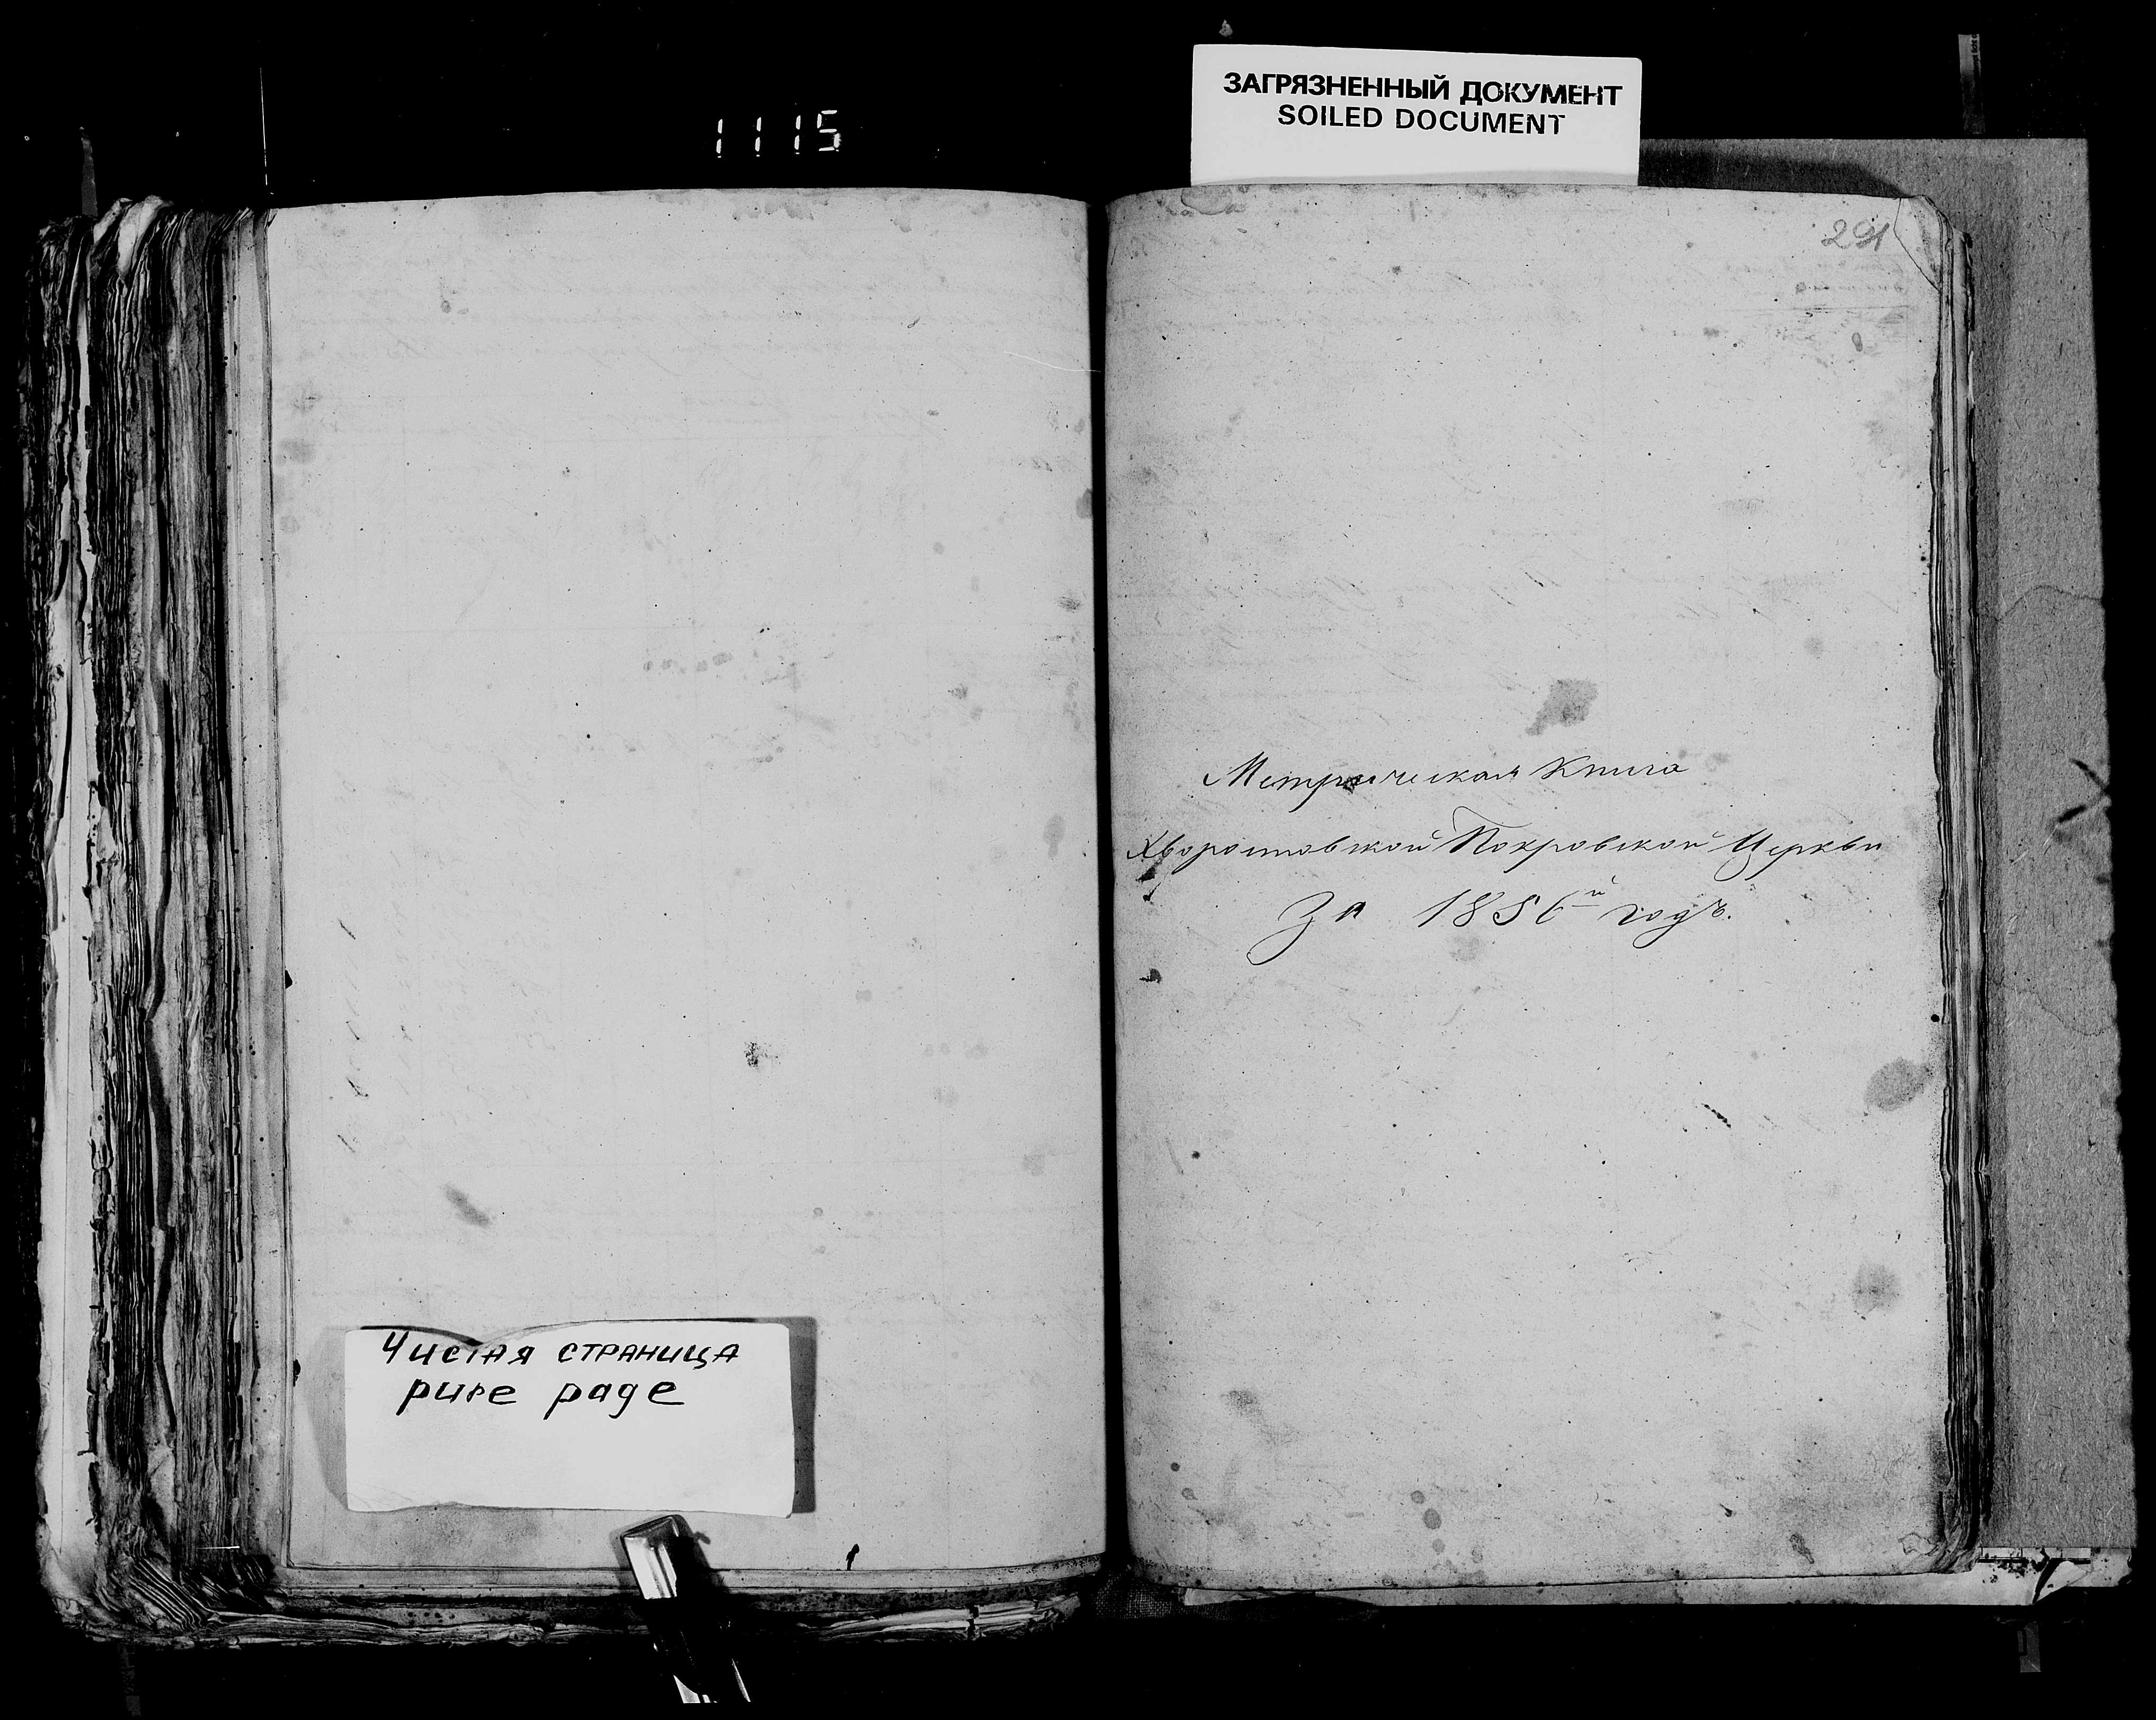 1115
ЗАГРЯЗНЕННЫЙ ДОКУМЕНТ
SOILED DOCUMENT
291
Метрическая Книга
Хворостовской Покровской Церкви
За 1856й годъ.
Чистая страница
pure page